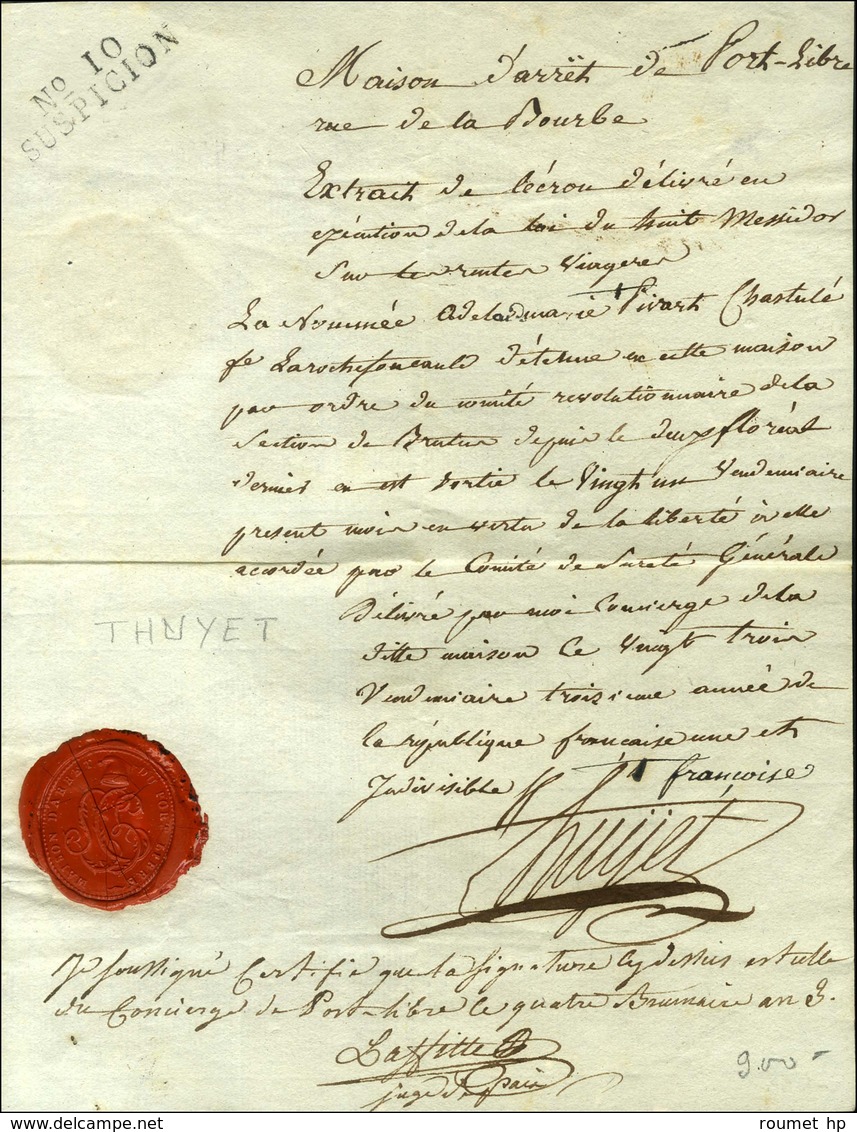 No 10
SUSPICION
Maison d'arrêt de Port-Libre
rue de la Bourbe
Extrait de l'écrou délivré en
exécution de la loi du huit Messidor
sur les rentes viageres
La Nommée adelaide marie Pivart Chastulé
fe Larochefoucauld détenue en cette maison
par ordre du comité revolutionnaire de la
Section de Brutus depuis le deux floréal
dernier en est sortie le vingt un Vendemiaire
present mois en vertu de la liberté à elle
accordée par le Comité de Sureté Générale
Délivré par moi Concierge de la
ditte maison Ce Vingt trois
Vendemiaire troisieme année de
la république francaise une et
Indivisible françoise
Thuyet
THUYET
MAISON D'ARRET DU PORT LIBRE
Je soussigné Certifie que la signature cy dessus est celle
du Concierge de Port-libre le quatre Brumaire an 3.
Laffitte
juge de paix
900-
roumet hp